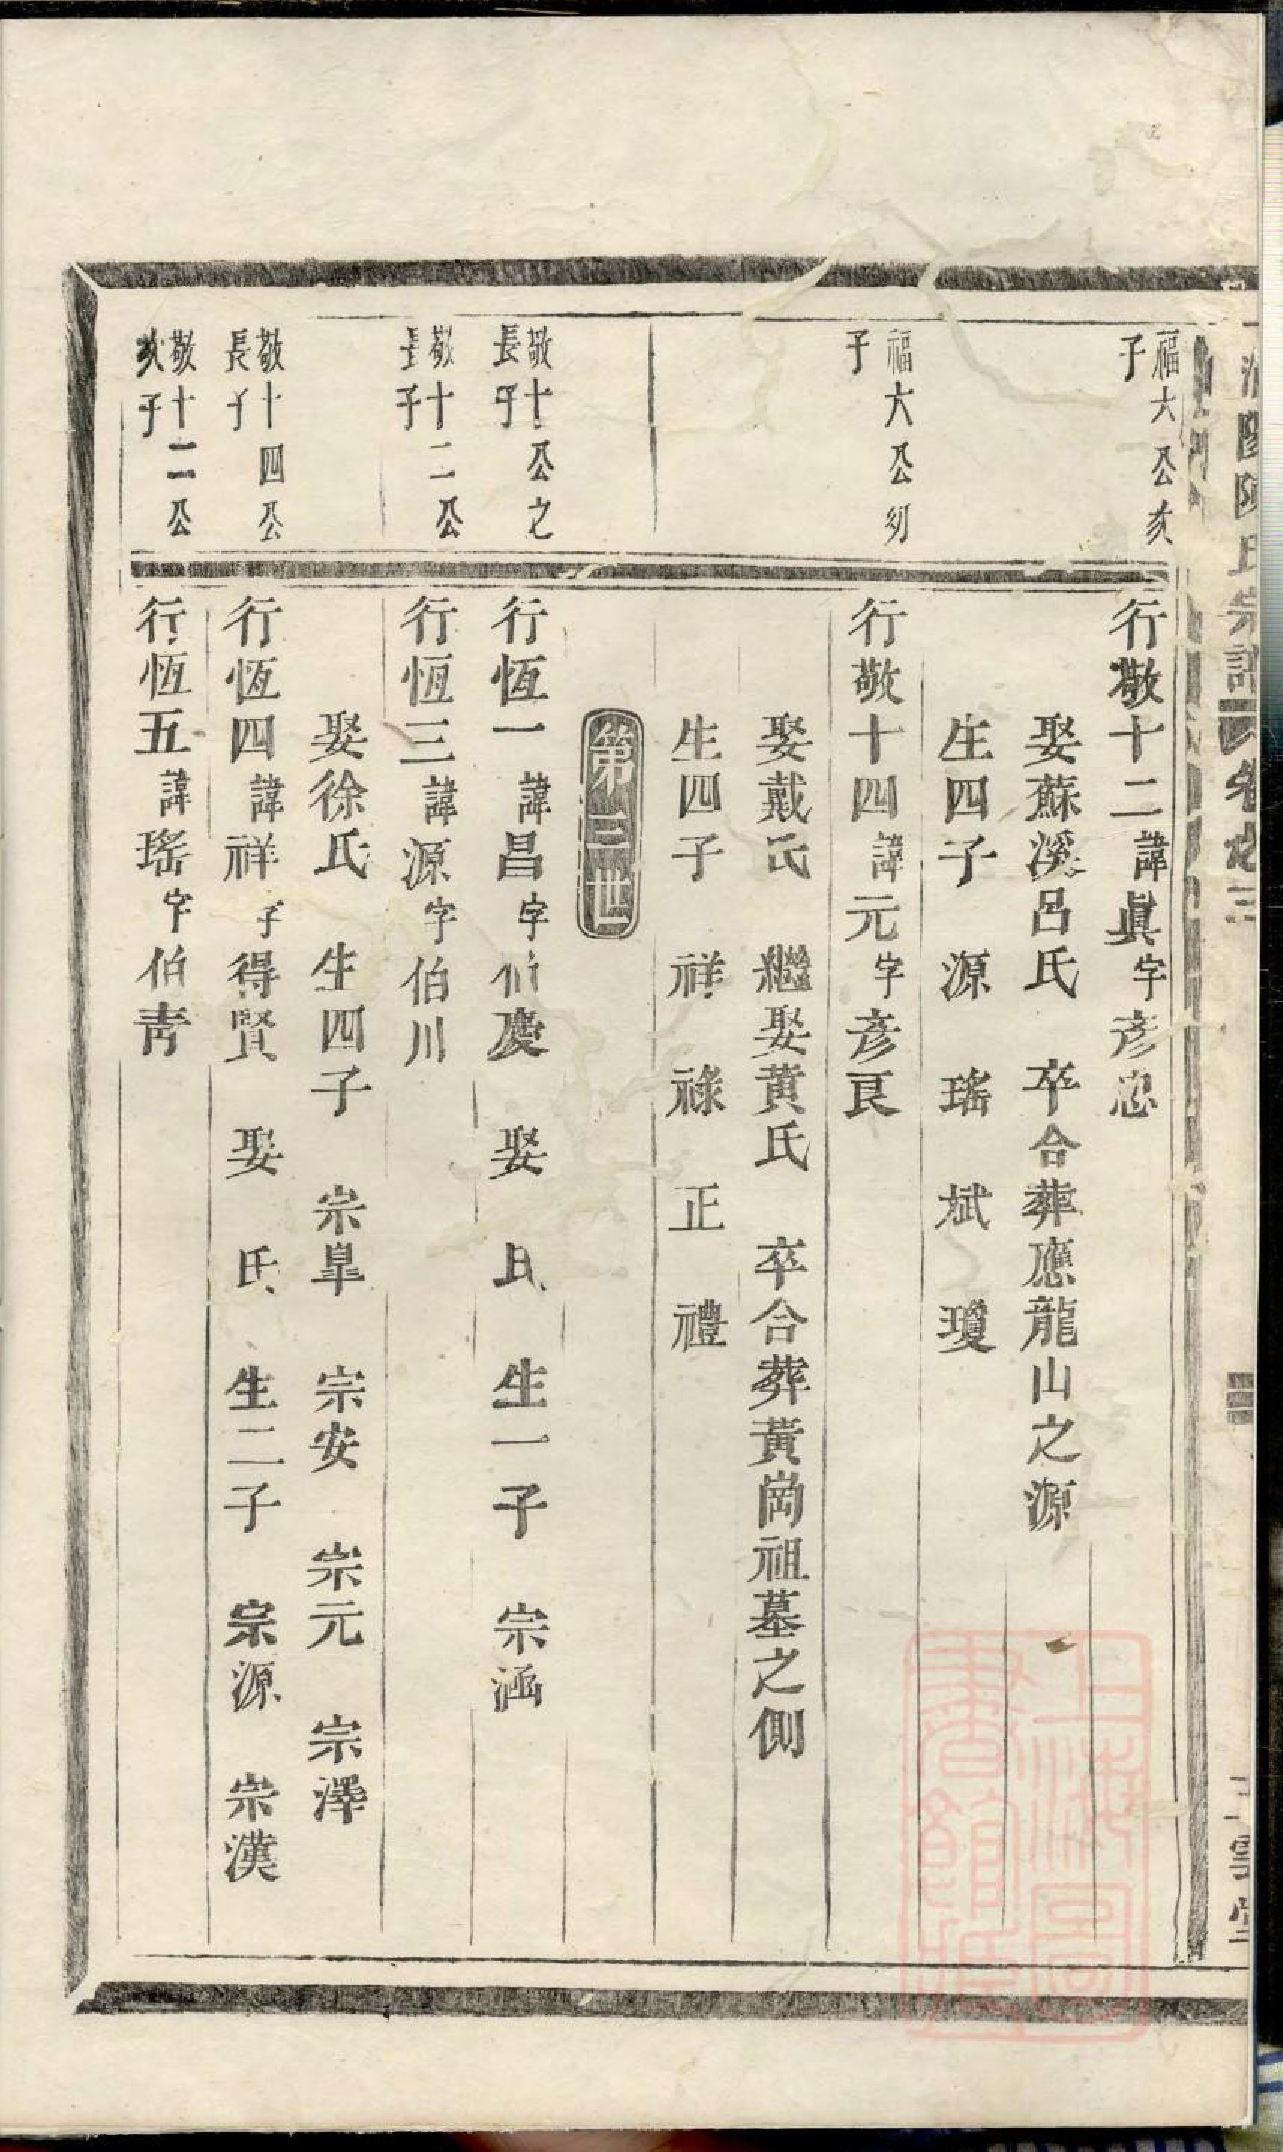 陳氏宗譜 卷之三
雲堂
福大公次
子
行敬十二諱眞字彥忠
娶蘇溪呂氏 卒合葬應龍山之源
生四子 源 瑤 斌 瓊
福大公幼
子
行敬十四諱元字彥良
娶戴氏 繼娶黃氏 卒合葬黃崗祖墓之側
生四子 祥 祿 正 禮
第三世
敬十公之
長子
行恆一諱昌字伯慶 娶 氏 生一子 宗涵
敬十二公
長子
行恆三諱源字伯川
娶徐氏 生四子 宗皐 宗安 宗元 宗澤
敬十四公
長子
行恆四諱祥字得賢 娶 氏 生二子 宗源 宗漢
敬十二公
次子
行恆五諱瑤字伯靑
上海圖
書館藏